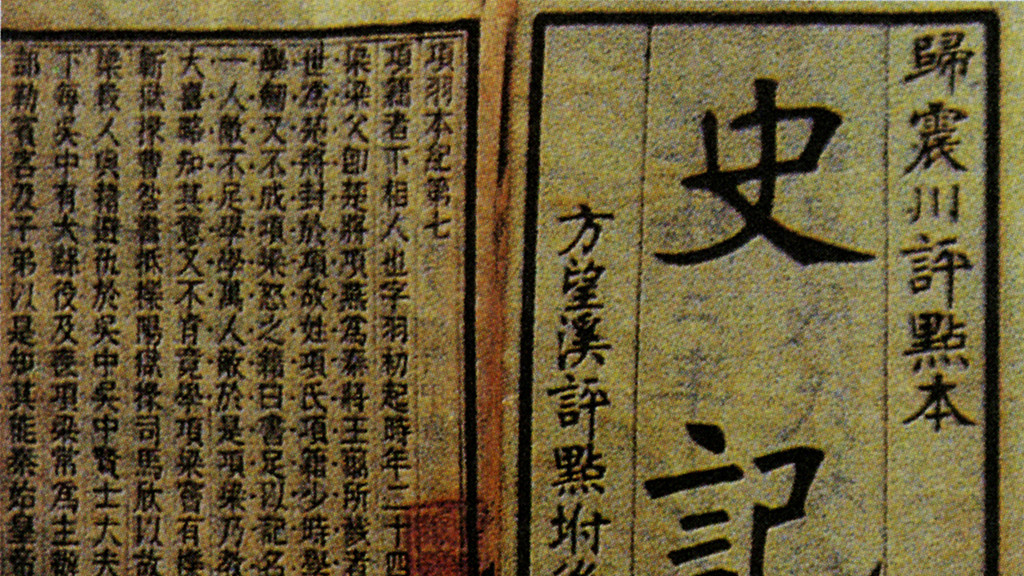 歸震川評點本
史記
方望溪評點坿後
項羽本紀第七
項籍者下相人也字羽初起時年二十四
梁梁父即楚將項燕爲秦將王翦所戮者
世爲楚將封於項故姓項氏項籍少時學
學劒又不成項梁怒之籍曰書足以記名
一人敵不足學學萬人敵於是項梁乃教
大喜略知其意又不肯竟學項梁嘗有櫟
蘄獄掾曹咎書抵櫟陽獄掾司馬欣以故
梁殺人與籍避仇於吳中吳中賢士大夫
下每吳中有大繇役及喪項梁常爲主辦
部勒賓客及子弟以是知其能秦始皇帝